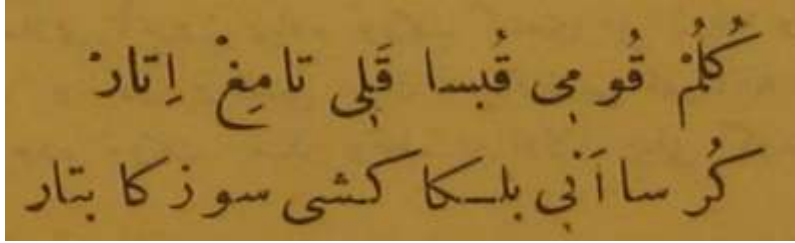 كُلُمْ قُومِى قُبسا قَلِى تامِغْ اِتارْ
كُرسا اَنِى بلكا كشى سوزكا بتار